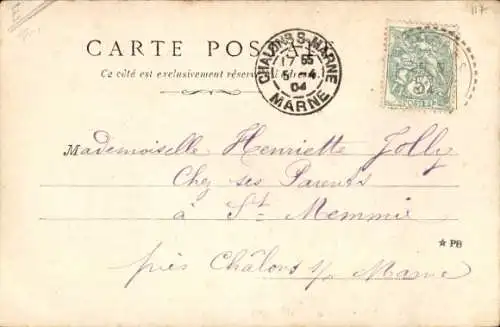 117.
CARTE POS
Ce côté est exclusivement réservé
CHALONS S-MARNE
17 55
5 - 4
04
MARNE
5
Mademoiselle Henriette Jolly
Chez ses Parents
à St- Memmie
★ PB
près Châlons s/ Marne